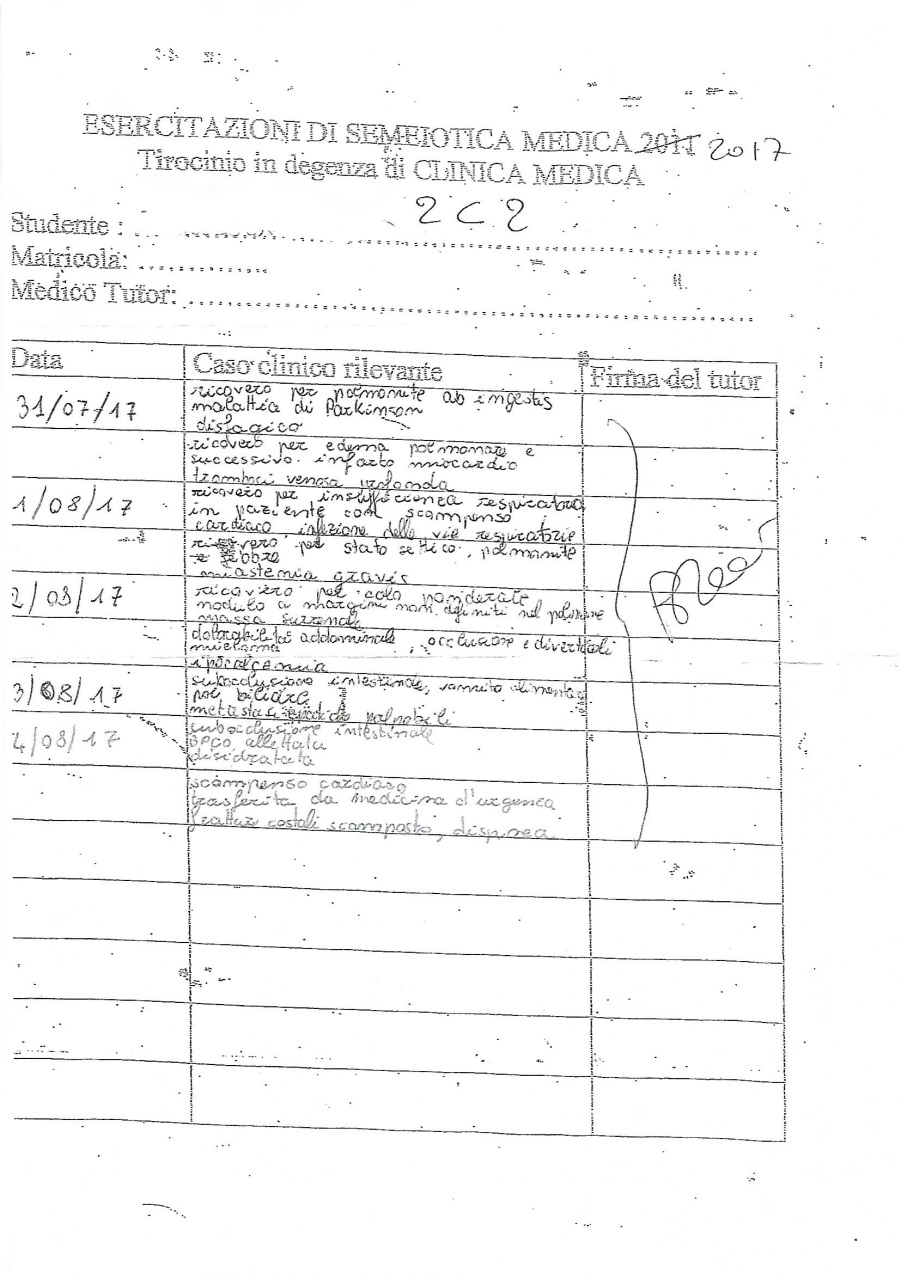 ESERCITAZIONI DI SEMEIOTICA MEDICA 2011 2017
Tirocinio in degenza di CLINICA MEDICA
2 C 2
Studente :
Matricola:
Medico Tutor:
Data Caso clinico rilevante Firma del tutor
31/07/17 ricovero per polmonite ab ingestis
malattia di Parkinson
disfagico
ricovero per edema polmonare e
successivo infarto miocardio
venosa profonda
1/08/17 ricovero per insufficienza respiratoria
in paziente con scompenso
cardiaco infezione delle vie respiratorie
ricovero per stato settico, polmonite
e febbre
miastemia gravis
2/08/17 ricovero per calo ponderale
modulo a margini non definiti nel polmone
massa surrenale
addominale, occlusione e diverticoli
mieloma
ipocalcemia
3/08/17 subocclusione intestinale, vomito alimentare
metastasi palpabili
4/08/17 subocclusione intestinale
BPCO allettata
disidratata
scompenso cardiaco
trasferita da medicina d'urgenza
costali scomposte, dispnea